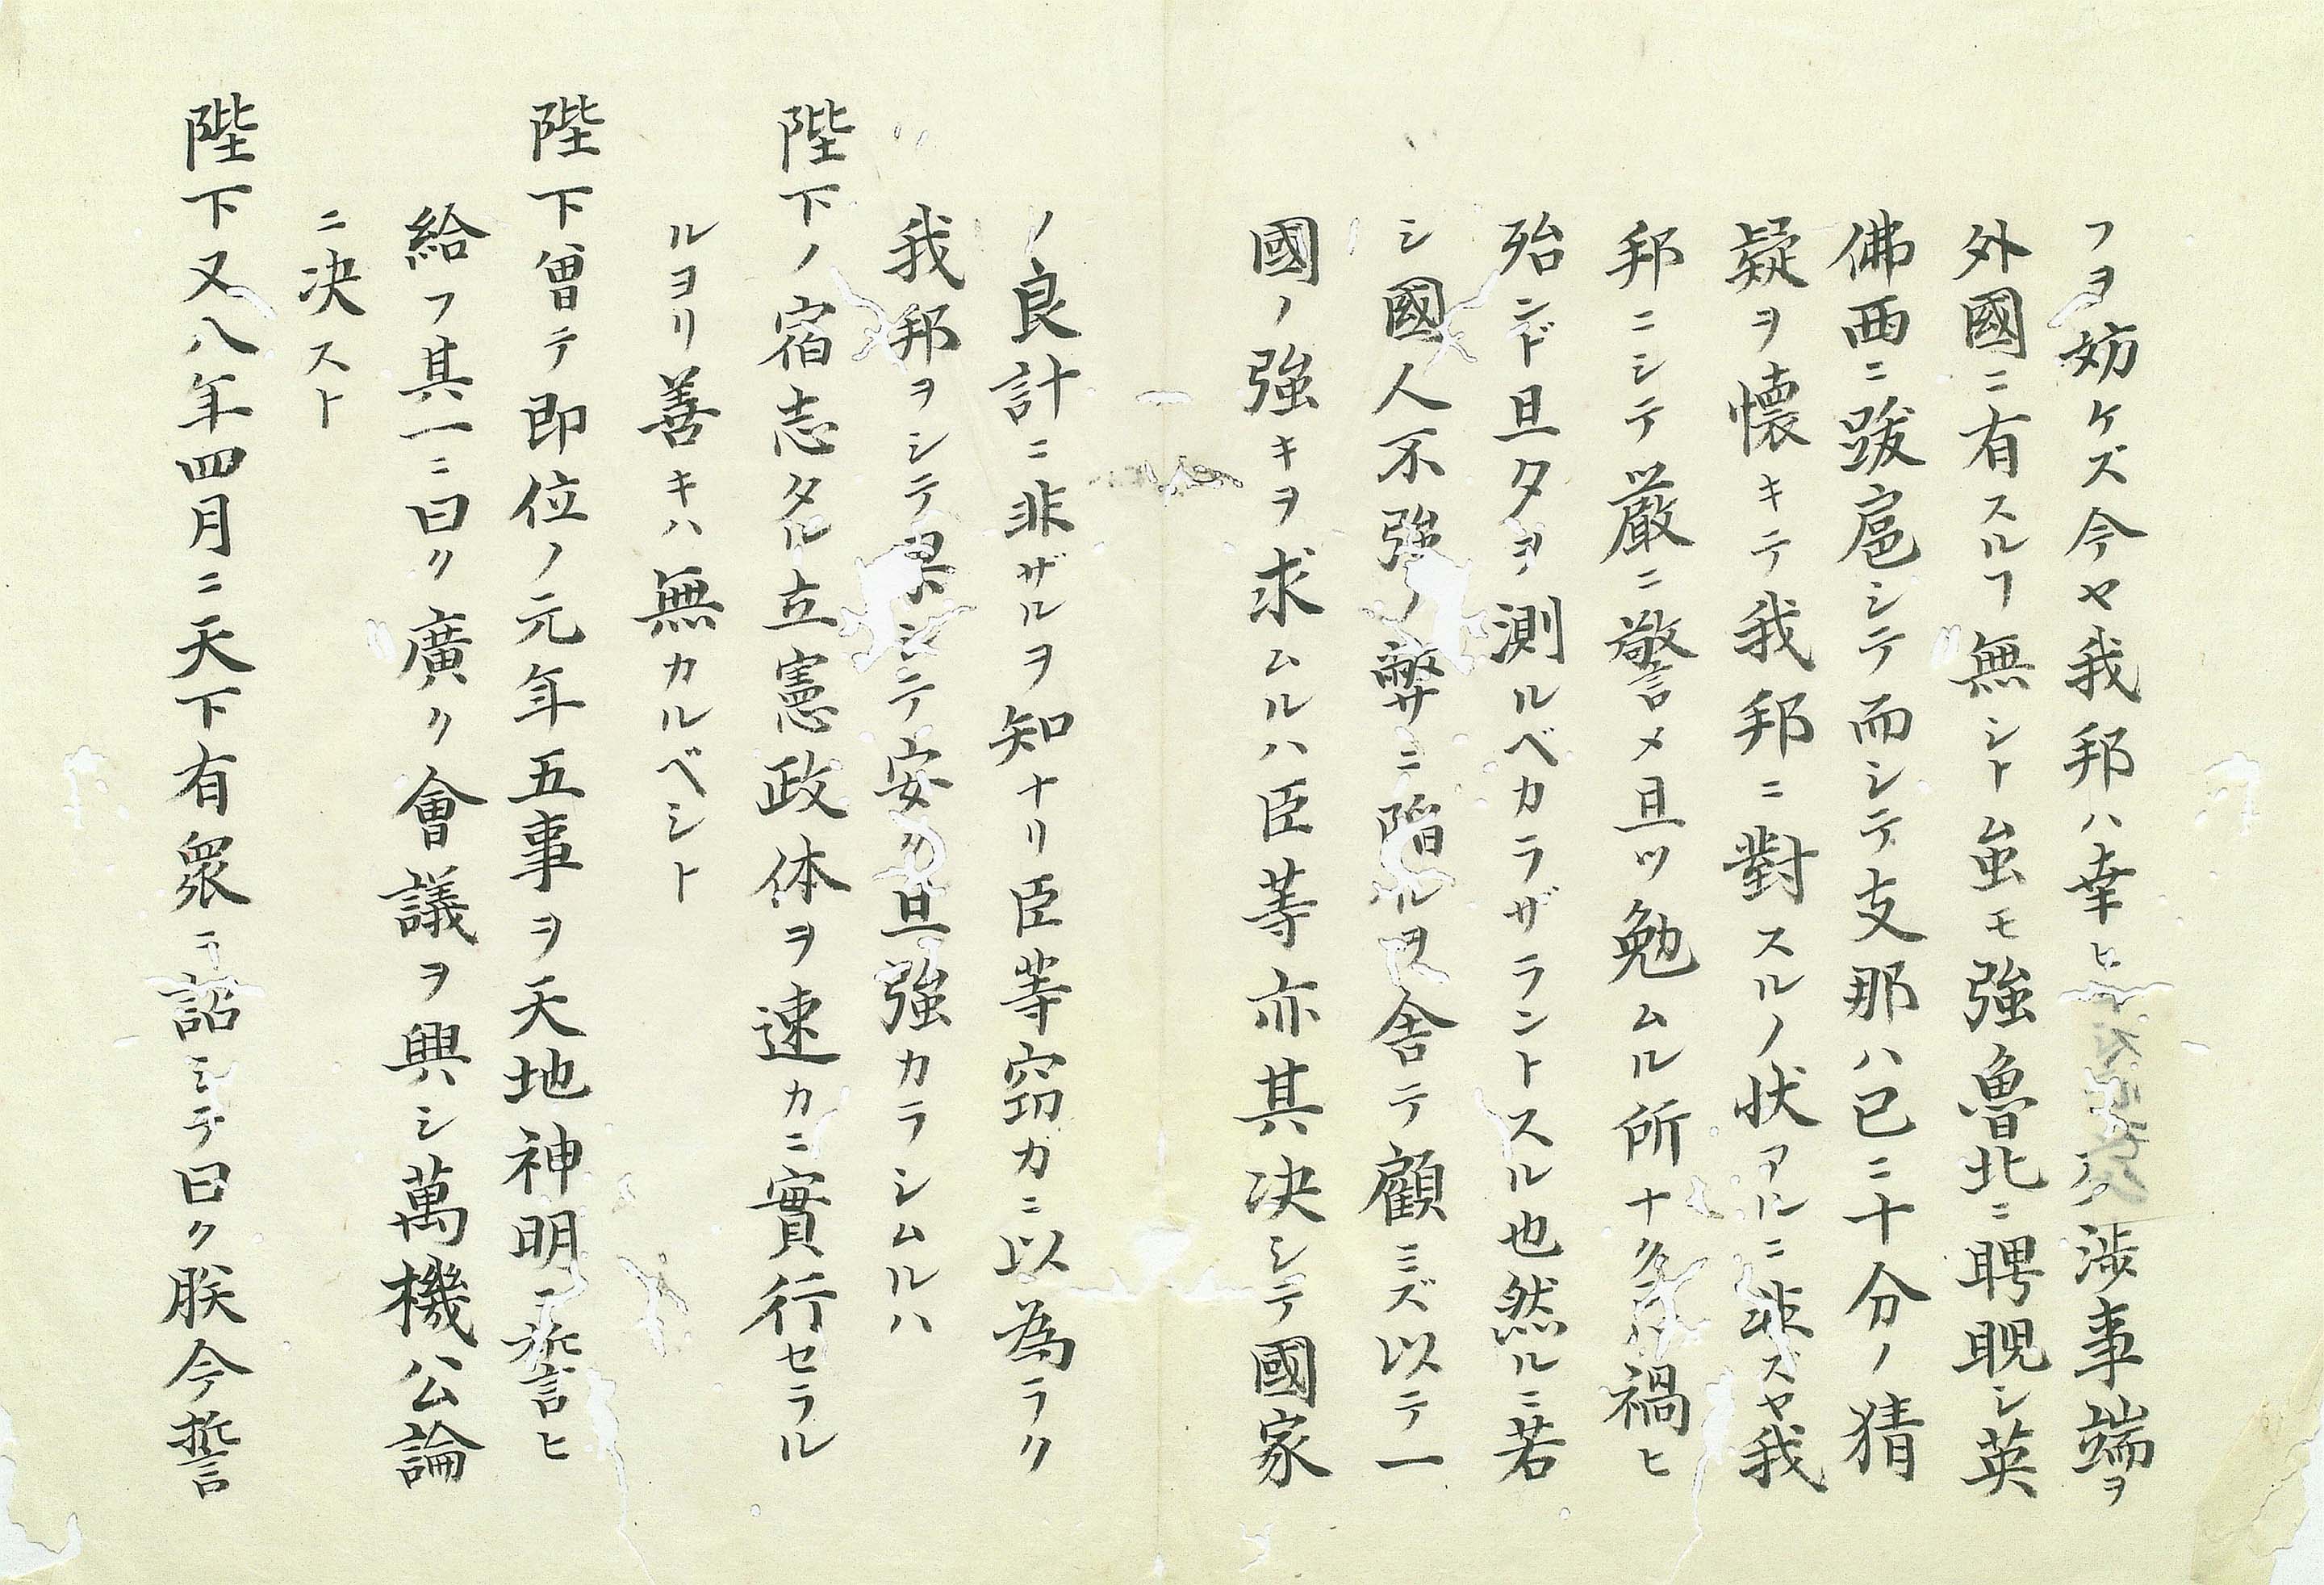 フヲ妨ケズ今ヤ我邦ハ幸ヒニ渉事端ヲ
外國ニ有スルヿ無シト虽モ強魯北ニ聘睨シ英
佛西ニ跋扈シテ而シテ支那ハ已ニ十分ノ猜
疑ヲ懐キテ我邦ニ對スルノ状アルニ非ズヤ我
邦ニシテ厳ニ警メ且ツ勉ムル所ナクンバ禍ヒ
殆ンド旦タヲ測ルベカラザラントスル也然ルニ若
シ國人不強ノ弊ニ陷ルヲ舎テ顧ミズ以テ一
國ノ強キヲ求ムルハ臣等亦其决シテ國家
ノ良計ニ非ザルヲ知ナリ臣等窃カニ以為ラク
我邦ヲシテ果シテ安ク且強カラシムルハ
陛下ノ宿志タル立憲政体ヲ速カニ實行セラル
ルヨリ善キハ無カルベシト
陛下曽テ即位ノ元年五事ヲ天地神明ニ誓ヒ
給フ其一ニ曰ク廣ク會議ヲ興シ萬機公論
ニ决スト
陛下又八年四月ニ天下有衆ニ詔シテ曰ク朕今誓